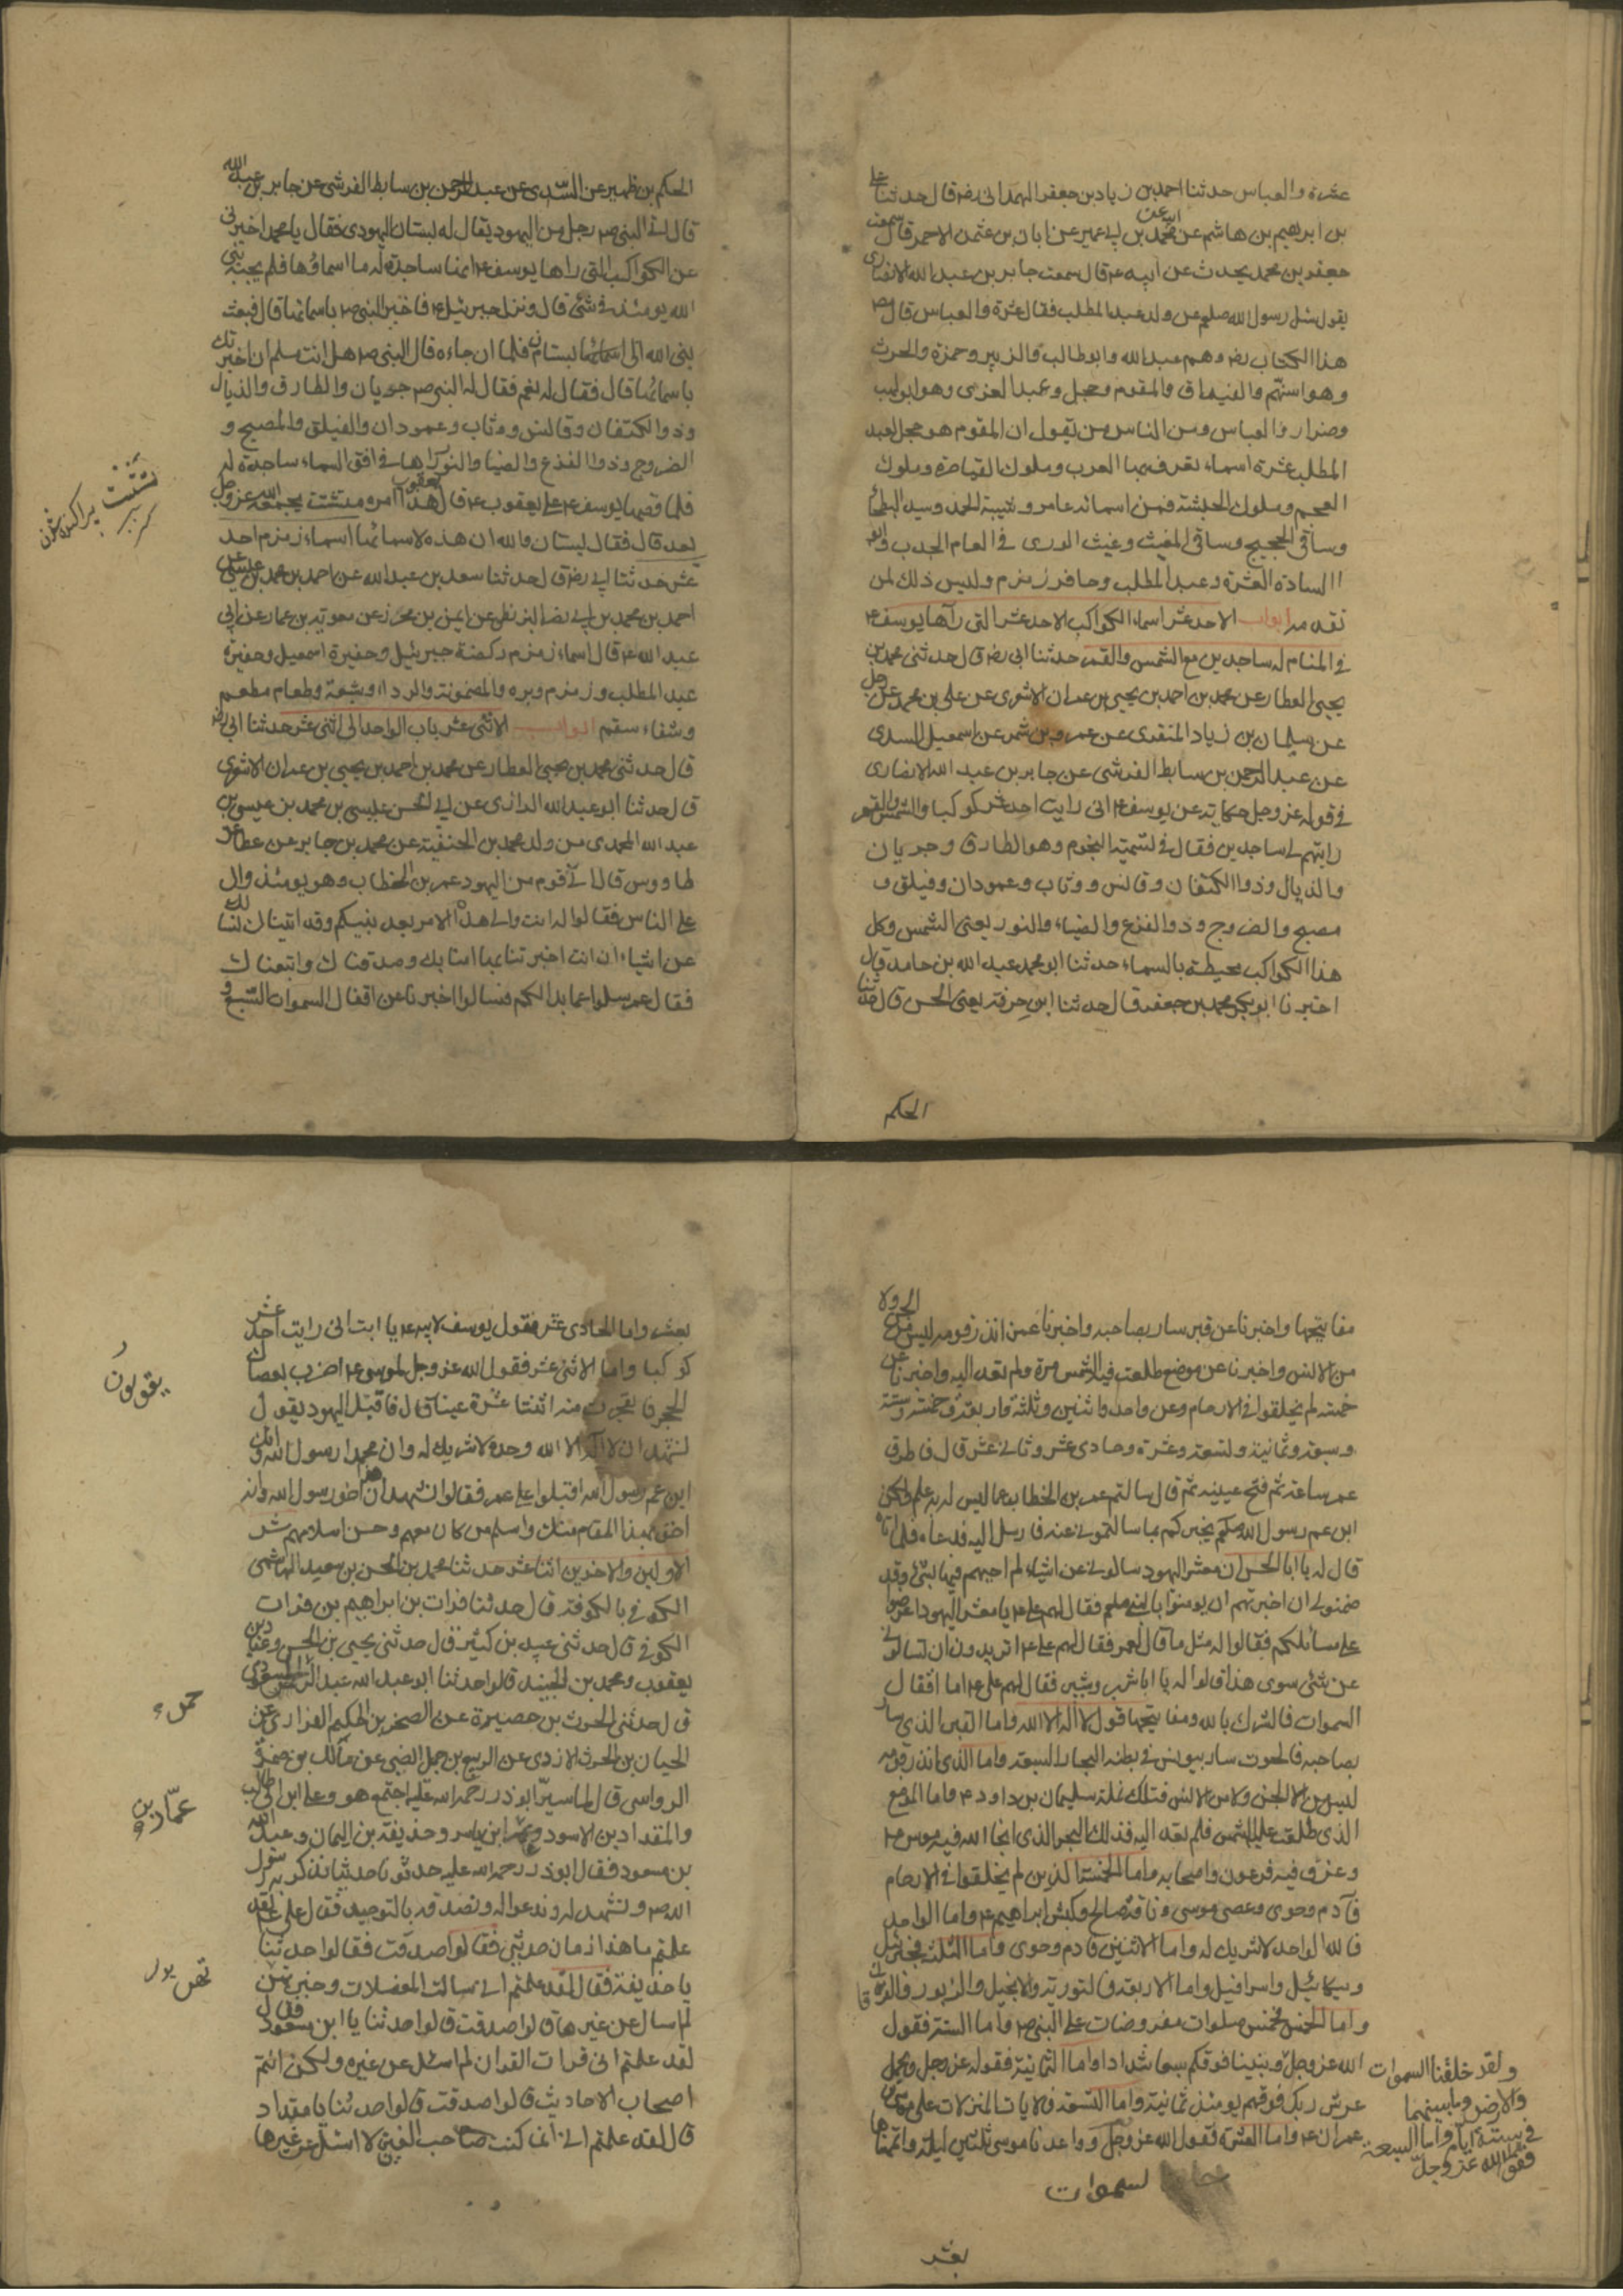 عشرة والعباس حدثنا احمد بن زياد بن جعفر الهمدانى رض قال حدثنا على
بن ابرهيم بن هاشم عن ابيه عن محمد بن ابى عمير عن ابان بن عثمن الاحمر قال سمعت
جعفر بن محمد يحدث عن ابيه ع قال سمعت جابر بن عبد الله الانصارى
يقول سئل رسول الله صلعم عن ولد عبد المطلب فقال عشرة والعباس قال مص
هذا الكتاب رض وهم عبد الله وابو طالب والزبير وحمزة والحرث
وهو اسنهم والغيداق والمقوم وحجل وعبد العزى وهو ابو لهب
وضرار والعباس ومن الناس من يقول ان المقوم هو حجل لعبد
المطلب عشرة اسماء تعرفه بها العرب وملوك القياصرة وملوك
العجم وملوك الحبشة فمن اسمائه عامر وشيبة الحمد وسيد البطحا
وساقى الحجيج وساقى المغيث وغيث الورى فى العام الجدب وابو
السادة العشرة وعبد المطلب وحافر زمزم وليس ذلك لمن
تقدمه ابواب الاحد عشر اسماء الكواكب الاحد عشر التى رآها يوسف ع
فى المنام له ساجدين مع الشمس والقمر حدثنا ابى رض قال حدثنى محمد بن
يحيى العطار عن محمد بن احمد بن يحيى بن عمران الاشعرى عن على بن محمد عن رجل
عن سليمان بن زياد المنقرى عن عمرو بن شمر عن اسمعيل السدى
عن عبد الرحمن بن سابط القرشى عن جابر بن عبد الله الانصارى
فى قوله عز وجل حكاية عن يوسف ع انى رايت احد عشر كوكبا والشمس والقمر
رايتهم لى ساجدين فقال فى تسمية النجوم وهو الطارق وجربان
والذيال وذوا الكتفان وقانس ووثاب وعمودان وفيلق و
مصبح والضروج وذو الفزع والضياء والنور يعنى الشمس وكل
هذا الكواكب محيطة بالسماء حدثنا ابو محمد عبد الله بن حامد قال
اخبرنا ابو بكر محمد بن جعفر قال حدثنا ابن عرفة يعنى الحسن قال حدثنا
الحكم
الحكم بن ظهير عن السدى عن عبد الرحمن بن سابط القرشى عن جابر بن عبد الله
قال اتى النبى ص رجل من اليهود يقال له بستان اليهودى فقال يا محمد اخبرنى
عن الكواكب التى راها يوسف ع انها ساجدة له ما اسماؤها فلم يجبه نبى
الله يومئذ فى شئ قال ونزل جبرئيل ع فاخبر النبى ص باسمائها قال فبعث
نبى الله الى بستان فلما ان جاءه قال النبى ص هل انت مسلم ان اخبرتك
باسمائها قال فقال له نعم فقال له النبى ص جربان والطارق والذيال
وذو الكتفان وقانس ووثاب وعمودان والفيلق والمصبح و
الضروج وذوا الفزع والضيا والنور راها فى افق السماء ساجدة له
فلما قصها يوسف ع على يعقوب ع قال يعقوب هذا امر متشتت يجمعه الله عز وجل
بعد قال فقال بستان والله ان هذه لاسمائها اسماء زمزم احد
عشر حدثنا ابى رض قال حدثنا سعد بن عبد الله عن احمد بن محمد بن عيسى عن
احمد بن محمد بن ابى نصر البزنطى عن ايمن بن محرز عن معوية بن عمار عن ابى
عبد الله ع قال اسماء زمزم ركضة جبرئيل وحفيرة اسمعيل وحفيرة
عبد المطلب وزمزم وبره والمضمونة والرداا وشبعة وطعام مطعم
وشفاء سقم ابواب الاثنى عشر باب الواحد الى اثنى عشر حدثنا ابى رض
قال حدثنى محمد بن يحيى العطار عن محمد بن احمد بن يحيى بن عمران الاشعرى
قال حدثنا ابو عبد الله الرازى عن ابى الحسن عيسى بن محمد بن عيسى بن
عبد الله المحمدى من ولد محمد بن الحنفية عن محمد بن جابر عن عطا عن
طاووس قال اتى قوم من اليهود عمر بن الخطاب وهو يومئذ وال
على الناس فقالوا له انت والى هذا الامر بعد نبيكم وقد اتيناك لنسئلك
عن اشياء ان انت اخبرتنا بها امنا بك وصدقناك واتبعناك
فقال عمر سلوا عما بدا لكم فسالوا اخبرنا عن اقفال السموات السبع و
تشتت پراكنده شدن
مفاتيحها واخبرنا عن قبر سار بصاحبه واخبرنا عمن انذر قومه ليس من الجن ولا
من الانس واخبرنا عن موضع طلعت فيه الشمس مرة ولم تعد اليه واخبرنا عن
خمسة لم يخلقوا فى الارحام وعن واحد واثنين وثلثة واربعة وخمسة وستة
وسبعة وثمانية وتسعة وعشرة وحادى عشر وثانى عشر قال فاطرق
عمر ساعة ثم فتح عينيه ثم قال سالتم عمر بن الخطاب عما ليس له به علم ولكن
ابن عم رسول الله صلعم يخبركم بما سالتمونى عنه فارسل اليه فدعاه فلما اتاه
قال له يا ابا الحسن ان معشر اليهود سالونى عن اشياء لم اجبهم فيها بشئ وقد
ضمنوا لى ان اخبرتهم ان يومنوا بالنبى صلعم فقال لهم على ع يا معشر اليهود اعرضوا
على مسائلكم فقالوا له مثل ما قال لعمر فقال لهم على ع اتريدون ان تسالونى
عن شئ سوى هذا قالوا له يا ابا شبر وشبير فقال لهم على ع اما اقفال
السموات فالشرك بالله ومفاتيحها قول لا اله الا الله واما القبر الذى سار
بصاحبه فالحوت سار بيونس فى بطنه البحار السبعة واما الذى انذر قومه
ليس من الجن ولا من الانس فتلك نملة سليمان بن داود ع واما الموضع
الذى طلعت عليه الشمس فلم تعد اليه فذلك البحر الذى انجا الله فيه موسى ع
وغرق فيه فرعون واصحابه واما الخمسة الذين لم يخلقوا فى الارحام
فآدم وحوى وعصى موسى وناقة صالح وكبش ابراهيم ع واما الواحد
فالله الواحد لا شريك له واما الاثنين فآدم وحوى واما الثلثة فجبرئيل
وميكائيل واسرافيل واما الاربعة فالتورية والانجيل والزبور والفرقان
واما الخمس فخمس صلوات مفروضات على النبى ص واما الستة فقول
الله عز وجل وبنينا فوقكم سبعا شدادا واما الثمانية فقوله عز وجل ويحمل
عرش ربك فوقهم يومئذ ثمانية واما التسعة فالايات المنزلات على موسى بن
عمران ع واما العشرة فقول الله عز وجل وواعدنا موسى ثلثين ليلة واتممناها
ولقد خلقنا السموات
والارض وما بينهما
فى ستة ايام واما السبعة
فقول الله عز وجل
لسموات
بعشر
بعشر واما الحادى عشر فقول يوسف لابيه ع يا ابت انى رايت احد عشر
كوكبا واما الاثنى عشر فقول الله عز وجل لموسى ع اضرب بعصاك
الحجر فانفجرت منه اثنتا عشرة عينا قال فاقبل اليهود يقول
نشهد ان لا اله الا الله وحده لا شريك له وان محمدا رسول الله وانك
ابن عم رسول الله اقبلوا على عمر فقالوا نشهد ان هذا اخو رسول الله وانه
احق بهذا المقام منك واسلم من كان معهم وحسن اسلامهم شر
الاولين والاخرين اثنا عشر حدثنا محمد بن الحسن بن سعيد الهاشمى
الكوفى بالكوفة قال حدثنا فرات بن ابراهيم بن فرات
الكوفى قال حدثنى عبيد بن كثير قال حدثنى يحيى بن الحسن وعباد بن
يعقوب ومحمد بن الجنيد قالوا حدثنا ابو عبد الله عبد الرحمن المسعودى
قال حدثنى الحرث بن حصيرة عن الصخر بن الحكم الفزارى عن
الحيان بن الحرث الازدى عن الربيع بن جميل الضبى عن مالك بن ضمرة
الرواسى قال لما سير ابو ذر رحمة الله عليه اجتمع هو وعلى ابن ابى طالب
والمقداد بن الاسود وعمار ابن ياسر وحذيفة بن اليمان وعبد الله
بن مسعود فقال ابو ذر رحمة الله عليه حدثونا حديثا نذكر به رسول
الله ص ونشهد له وندعوا له ونصدقه بالتوحيد فقال على ع لقد
علمتم ما هذا زمان حديثى فقالوا صدقت فقالوا حدثنا
يا حذيفة فقال لقد علمتم انى سالت المعضلات وخبرتهن
لم اسال عن غيرها قالوا صدقت قالوا حدثنا يا ابن مسعود فقال
لقد علمتم انى قرات القران لم اسئل عن غيره ولكن انتم
اصحاب الاحاديث قالوا صدقت قالوا حدثنا يا مقداد
قال لقد علمتم انى انما كنت صاحب الفتن لا اسئل عن غيرها
يقولون
حمزة
عمار بن